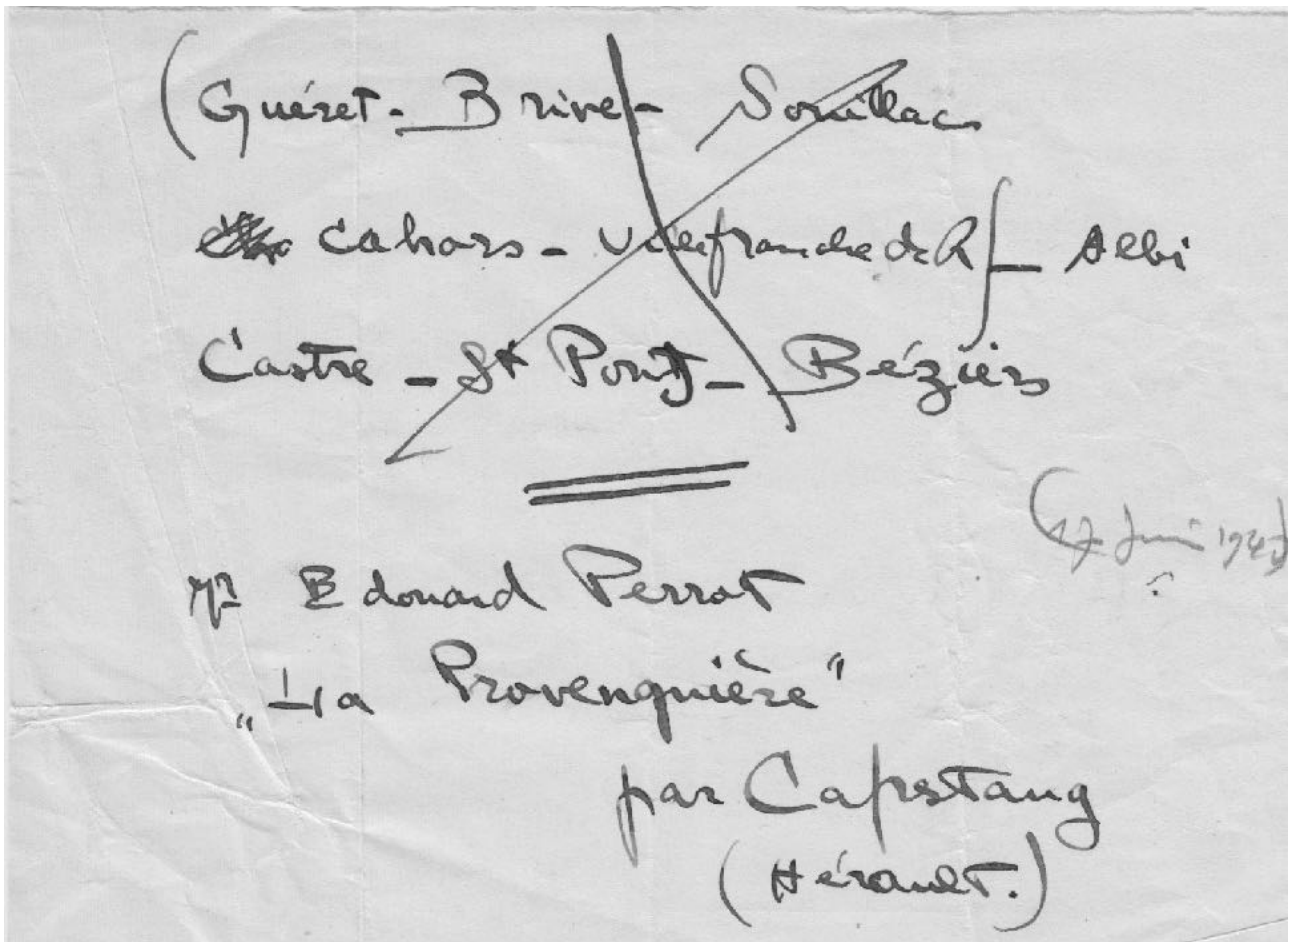 (Guéret - Brive - Souillac
Cahors - Villefranche de R - Albi
Castre - St Pons - Béziers
(17 Juin 194
?
Mr Edouard Perrot
"La Provenquière"
par Capestang
(Hérault.)